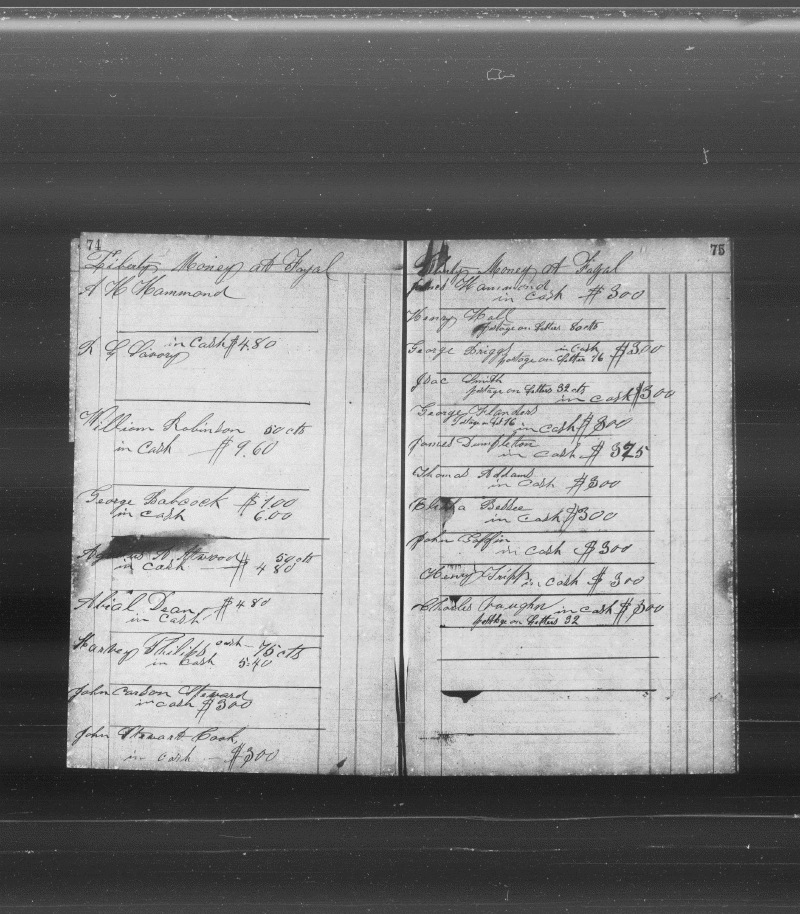 74
Liberty Money at Fayal
A H Hammond
in cash $4.80
L G Savory
William Robinson 50 cts
in cash $9.60
George Babcock $1.00
in cash 6.00
Atwood 50 cts
in cash $4 80
Abial Dean $4 80
in cash
Harvey Philips cash 75 cts
in cash 5.40
John Carson Steward
in cash $300
John Stewart Cook
in cash $300
75
Liberty Money At Fayal
James Hammond
in cash $300
Henry Hall
postage on letters 80 cts
George Briggs in cash $300
postage on letter 16
Isac Smith
postage on letters 32 cts
in cash $300
George Flanders
Postage on 16 in cash $300
James Dumpleton
in cash $325
Thomas Addams
in cash $300
Elisha Besse
in cash $300
John Coffin
in cash $300
Henry Tripp in cash $300
Charles Vaughn in cash $300
postage on letters 32